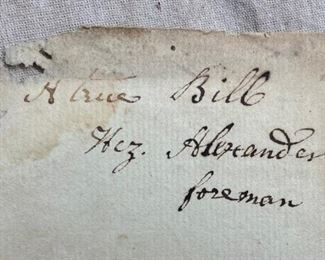 A true Bill
Hez. Alexander
foreman